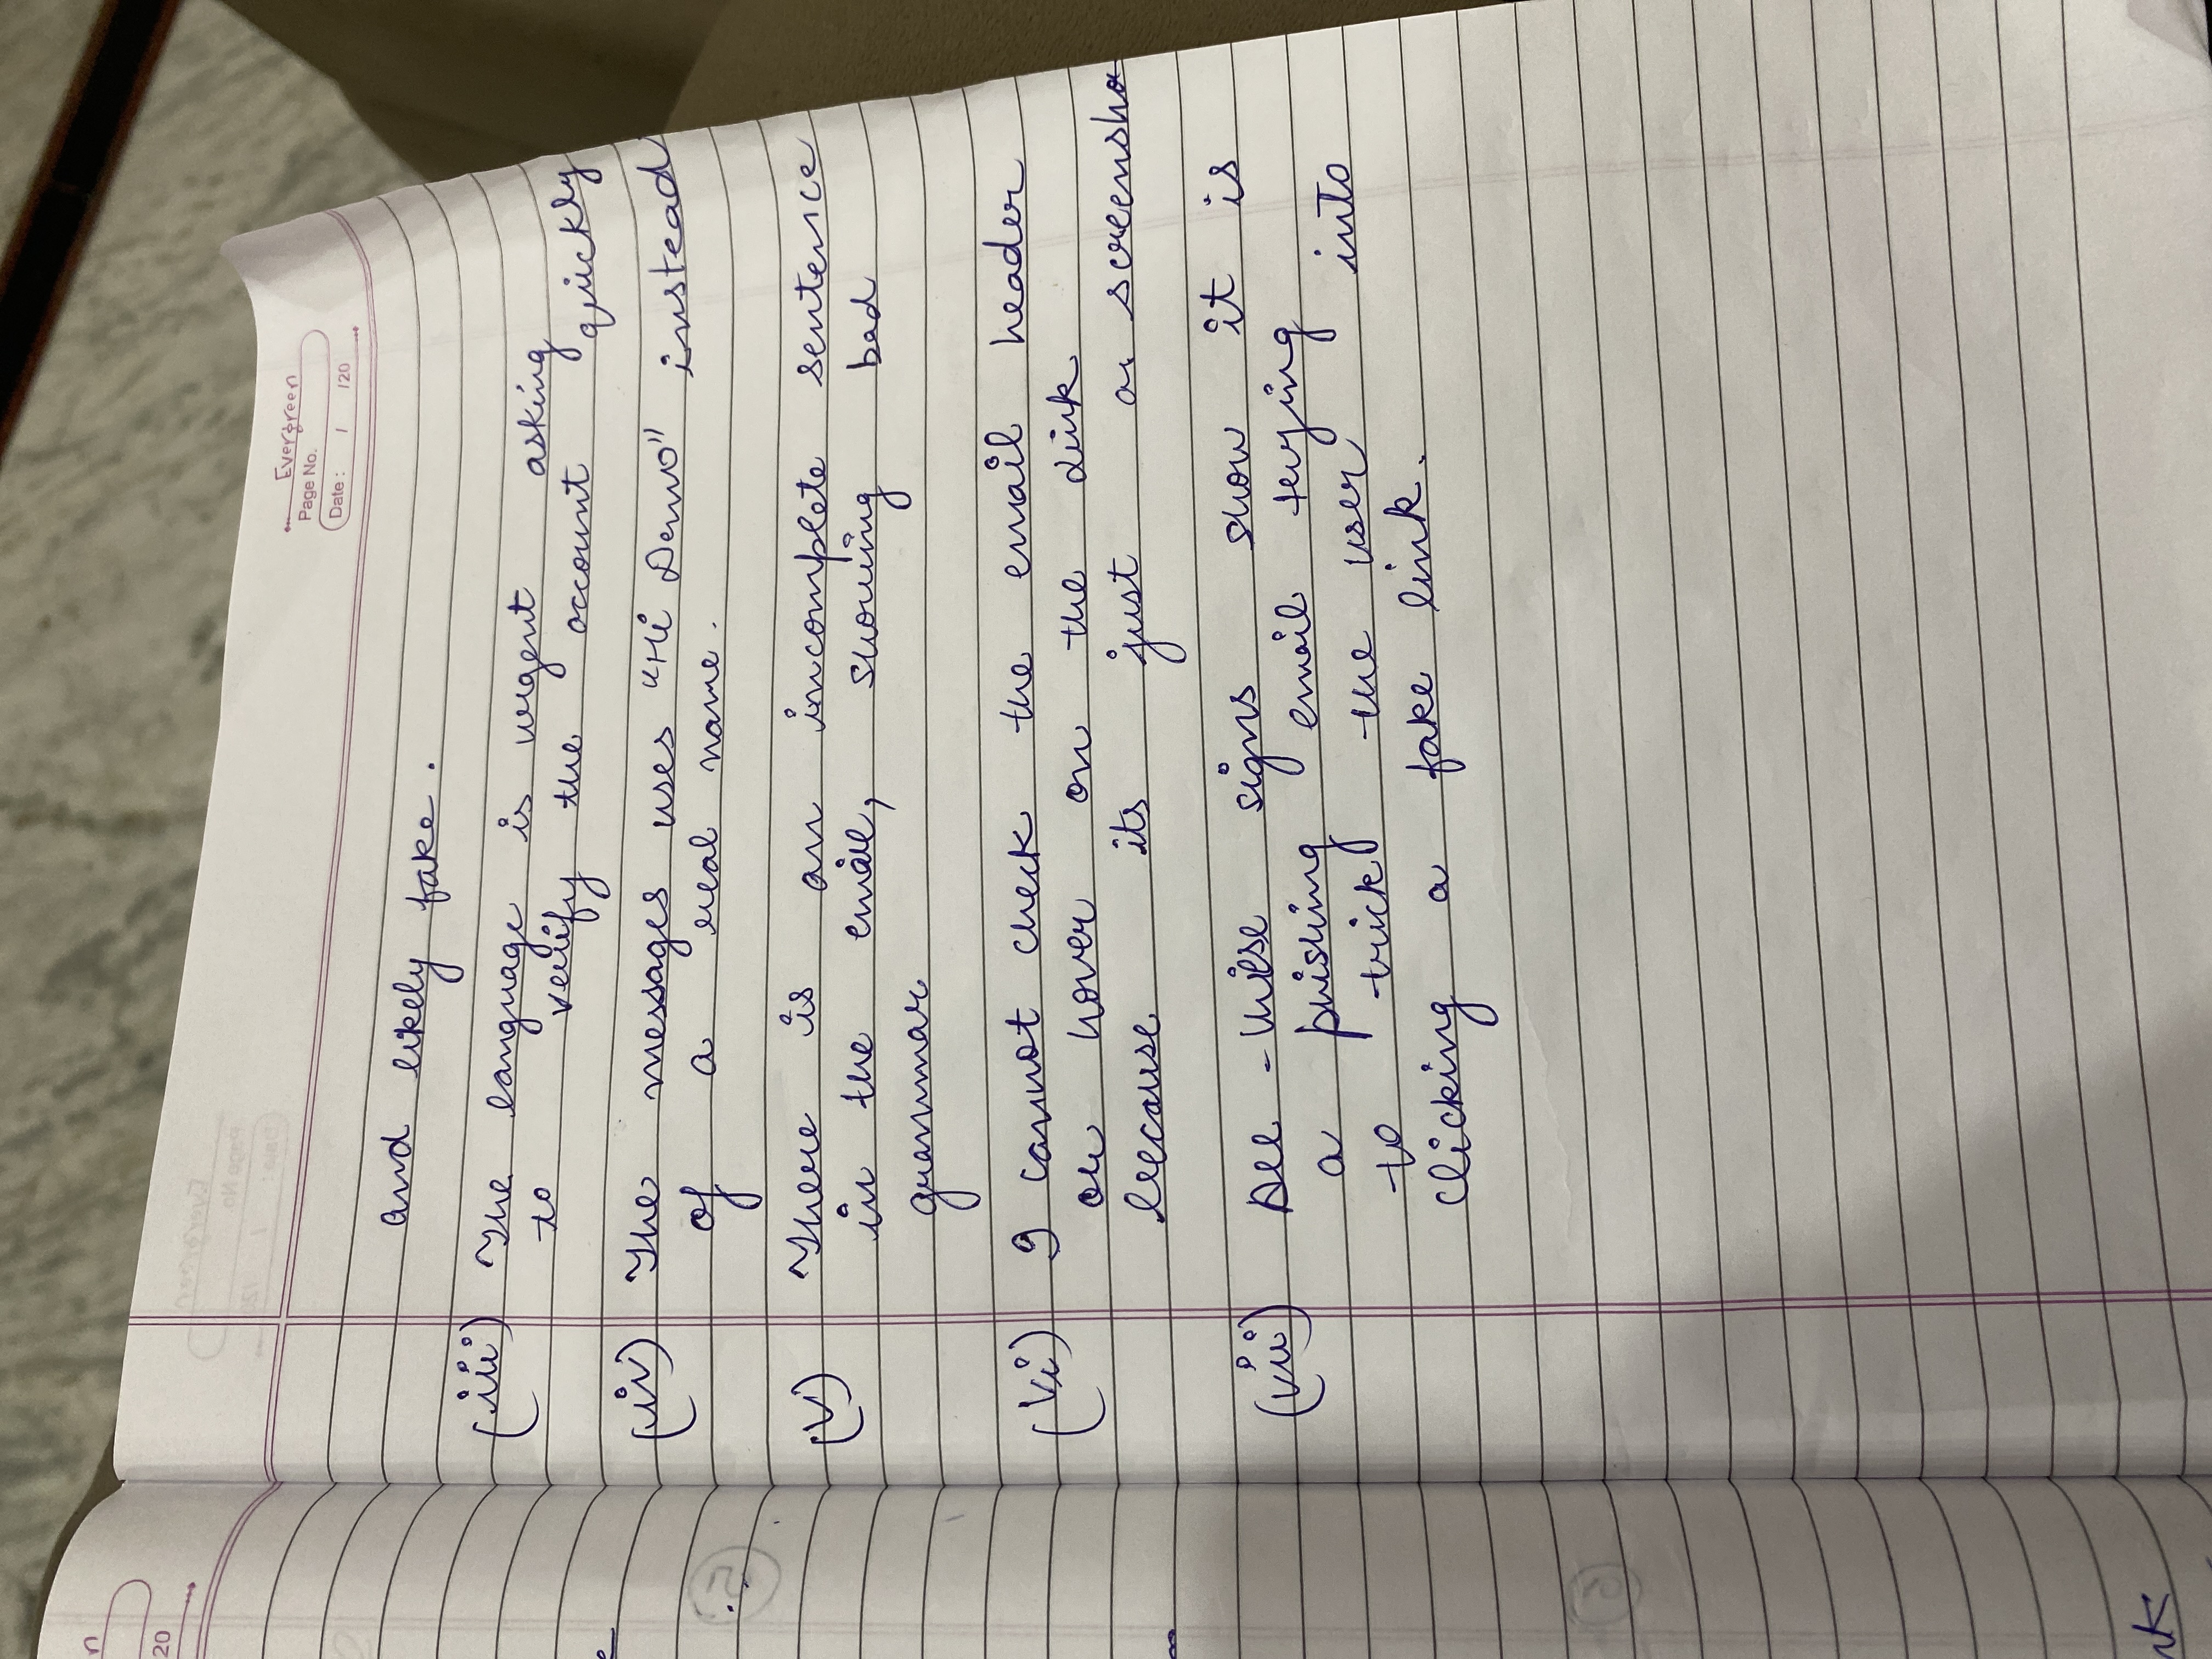 n
20
Evergreen
Page No.
Date : / /20
and likely fake .
(iii) The language is urgent asking
to verify the account quickly
(iv) The messages uses "Hi Demo" instead
of a real name .
(v) There is an incomplete sentence
in the email, showing bad
grammar
(vi) I cannot check the email header
or hover on the link
because its just a screensho
(vii) All these signs show it is
a phishing email trying
to trick the user into
clicking a fake link.